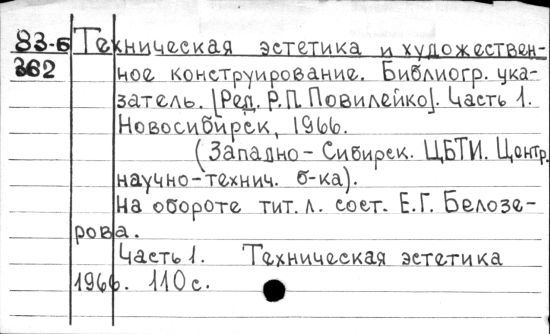 83-6 Техническая эстетика и художествен-
362 ное конструирование. Библиогр. ука-
затель. [Ред. Р.П. Повилейко]. Часть 1.
Новосибирск, 1966.
(Западно-Сибирск. ЦБТИ. Центр.
научно-технич. б-ка).
На обороте тит. л. сост. Е.Г. Белозе-
рова.
Часть 1. Техническая эстетика
1966. 110 с.